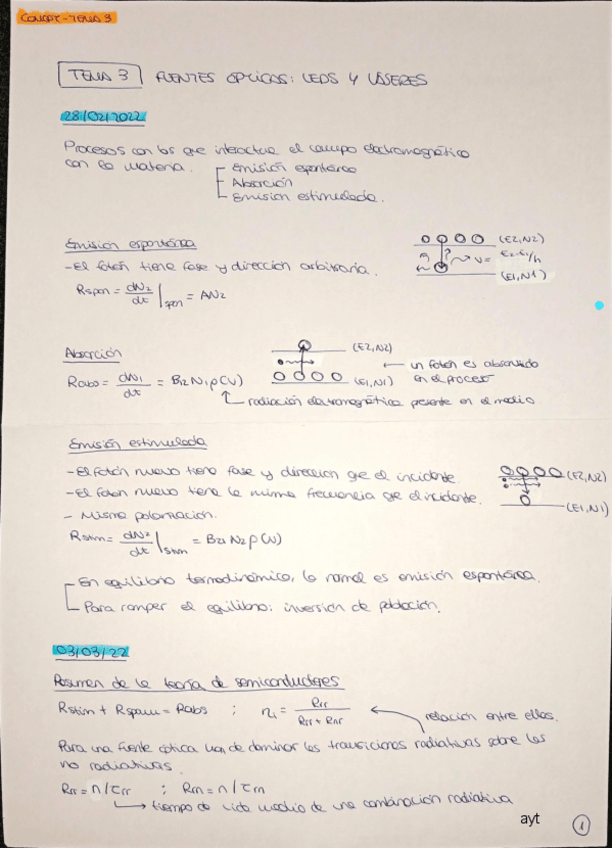 CONOPT - TEMA 3
TEMA 3 FUENTES ÓPTICAS: LEDS Y LÁSERES
28/02/2022
Procesos con los que interactúa el campo electromagnético
con la materia.
Emisión espontánea
Absorción
Emisión estimulada.
Emisión espontánea
- El fotón tiene fase y dirección arbitraria.
Rspon = dN2/dt |spon = AN2
(E2,N2)
ν = E2-E1/h
(E1,N1)
Absorción
Rabs = dN1/dt = B12 N1 ρ(ν)
(E2,N2)
(E1,N1)
← un fotón es absorbido
en el proceso
radiación electromagnética presente en el medio
Emisión estimulada
- El fotón nuevo tiene fase y dirección que el incidente.
- El fotón nuevo tiene la misma frecuencia que el incidente.
- Misma polarización.
Rstim = dN2/dt |stim = B21 N2 ρ(ν)
(E2,N2)
(E1,N1)
En equilibrio termodinámico, lo normal es emisión espontánea.
Para romper el equilibrio: inversión de población.
03/03/22
Resumen de la teoría de semiconductores
Rstim + Rspon = Rabs ; ηi = Rrr / Rrr + Rnr ← relación entre ellos.
Para una fuente óptica han de dominar las transiciones radiativas sobre las
no radiativas.
Rrr = n/τrr ; Rrn = n/τrn
→ tiempo de vida medio de una combinación radiativa
ayt
1